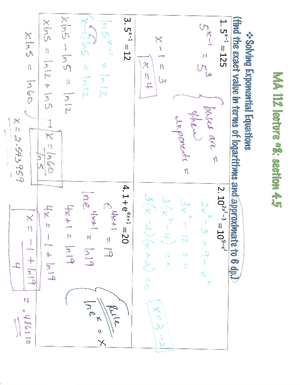 MA 112 lecture #8: section 4.5
❖Solving Exponential Equations
(find the exact value in terms of logarithms and approximate to 6 dp.)
1. 5^(x-1) = 125
5^(x-1) = 5^3
bases are =
then
exponents =
x - 1 = 3
x = 4
2. 10^(2x²-3) = 10^(9-x²)
2x² - 3 = 9 - x²
3x² - 12 = 0
3(x² - 4) = 0
3(x-2)(x+2) = 0
x = 2, -2
3. 5^(x-1) = 12
ln 5^(x-1) = ln 12
(x-1) ln 5 = ln 12
x ln 5 - ln 5 = ln 12
x ln 5 = ln 12 + ln 5
x ln 5 = ln 60
x = ln 60
ln 5
x = 2.543959
4. 1 + e^(4x+1) = 20
e^(4x+1) = 19
ln e^(4x+1) = ln 19
Rule
ln e^x = x
4x + 1 = ln 19
4x = -1 + ln 19
x = -1 + ln 19
4
= .486110